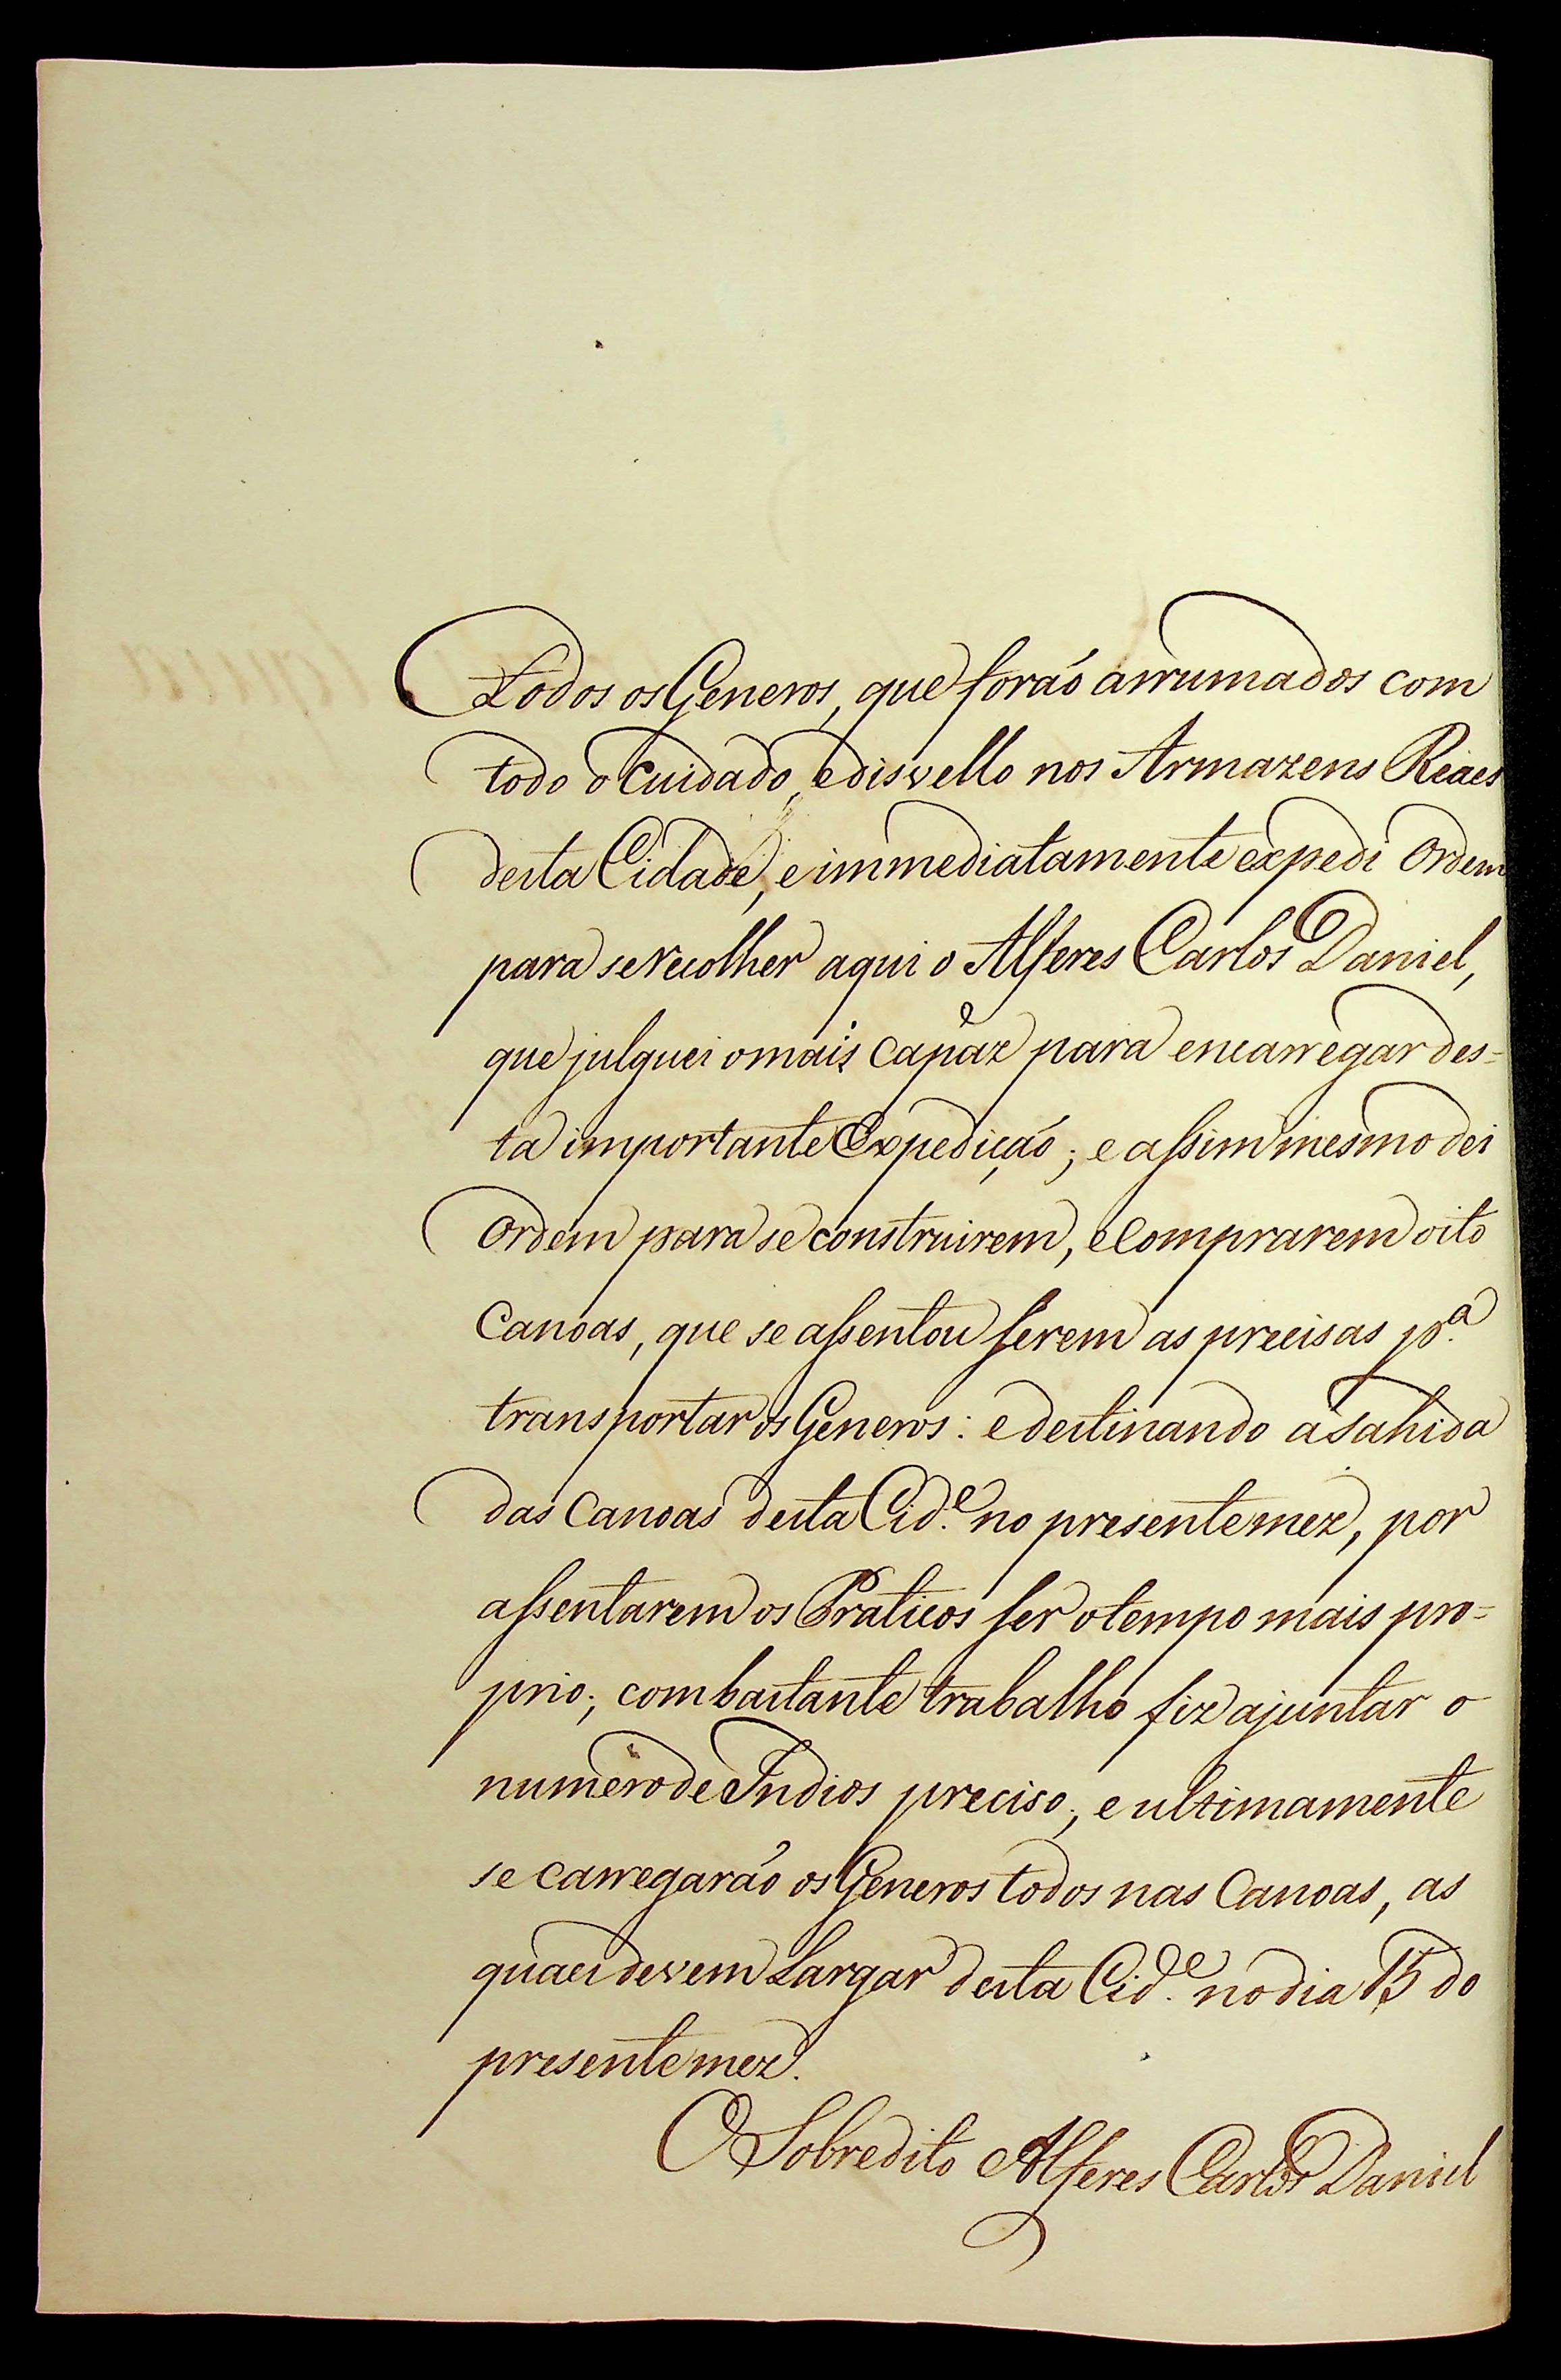 todos os Generos, que forão arrumados com
todo o cuidado, e disvello nos Armazens Reaes
desta Cidade, e immediatamente expedi Ordem
para se recolher aqui o Alferes Carlos Daniel,
que julguei o mais capáz para encarregar des=
ta importante Expedição; e assim mesmo dei
Ordem para se construirem, e Comprarem oito
Canoas, que se assentou serem as precisas p.ª
transportar os Generos: e destinando a sahida
das Canoas desta Cid.e no presente mez, por
assentarem os Praticos ser o tempo mais pro=
prio; com bastante trabalho fiz ajuntar o
numero de Indios preciso; e ultimamente
se carregarão os Generos todos nas Canoas, as
quaes devem Largar desta Cid.e no dia 15 do
presente mez.
O Sobredito Alferes Carlos Daniel